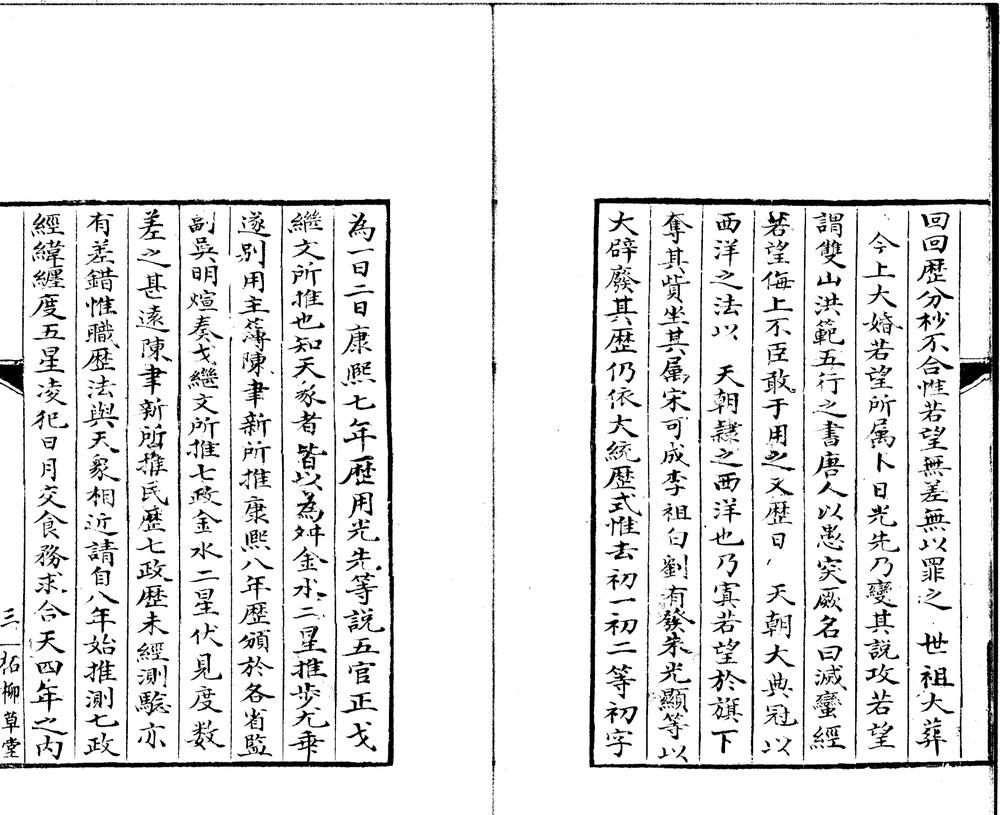 回回歷分杪不合惟若望無差無以罪之　世祖大葬
今上大婚若望所属卜日光先乃變其説攻若望
謂雙山洪範五行之書唐人以愚突厥名曰滅蠻經
若望侮上不臣敢于用之又歷日　天朝大典冠以
西洋之法以　天朝隷之西洋也乃寘若望於旗下
奪其貲坐其属宋可成李祖白劉有發朱光顯等以
大辟廢其歷仍依大統歷式惟去初一初二等初字
為一日二日康熙七年歷用光先等説五官正戈
繼文所推也知天象者皆以為舛金水二星推步尤乖
遂别用主簿陳聿新所推康熙八年歷頒於各省監
副吳明煊奏戈繼文所推七政金水二星伏見度数
差之甚遠陳聿新所推民歷七政歷未經測驗亦
有差錯惟職歷法與天象相近請自八年始推測七政
經緯纒度五星凌犯日月交食務求合天四年之内
三
拓柳草堂